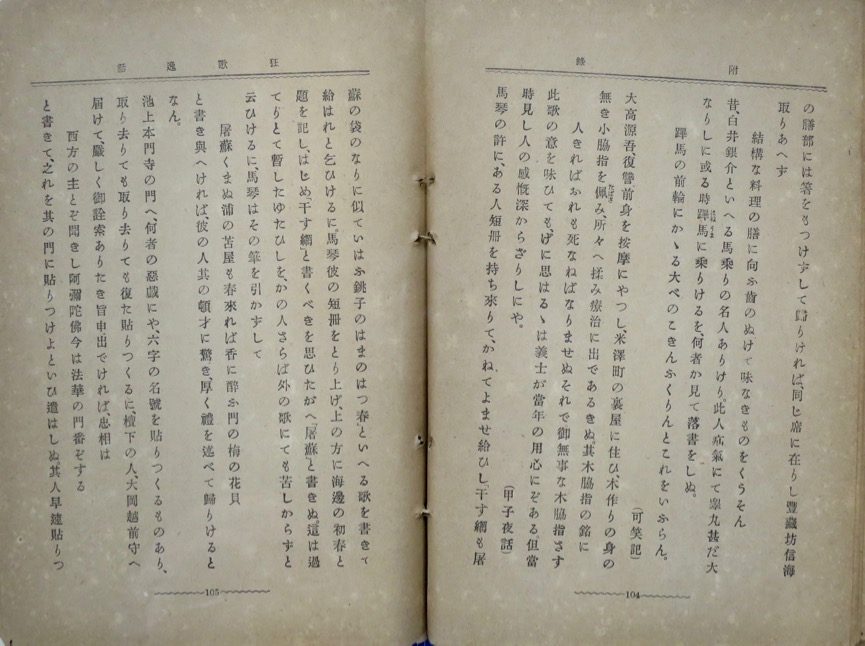 附錄
の膳部には箸をもつけずして歸りければ、同じ席に在りし豐藏坊信海
取りあへず
結構な料理の膳に向ふ齒のぬけて味なきものをくうそん
昔、白井銀介といへる馬乘りの名人ありけり此人疝氣にて睾丸甚だ大
なりしに或る時蹕馬に乘りけるを、何者か見て落書をしぬ。
蹕馬の前輪にかゝる大べのこきんふくりんとこれをいふらん。
(可笑記)
大高源吾、復讐前身を按摩にやつし、米澤町の裏屋に住ひ、木作りの身の
無き小脇指を佩み、所々へ揉み療治に出であるきぬ。其木脇指の銘に
人きればおれも死なねばなりませぬそれで御無事な木脇指さす
此歌の意を味ひても、げに思はるゝは義士が當年の用心にぞある。但當
時見し人の感慨深からざりしにや。
(甲子夜話)
馬琴の許に、ある人短冊を持ち來りて、かねてよませ給ひし、干す綱も屠
104
狂歌逸話
蘇の袋のなりに似ていはふ銚子のはまのはつ春といへる歌を書きて
給はれと乞ひけるに、馬琴彼の短冊をとり上げ、上の方に海邊の初春と
題を記し、はじめ「干す綱」と書くべきを思ひたがへ「屠蘇」と書きぬ。這は過
てりとて暫したゆたひしを、かの人さらば外の歌にても苦しからずと
云ひけるに、馬琴はその筆を引かずして
屠蘇くまぬ浦の苫屋も春來れば香に醉ふ門の梅の花貝
と書き與へければ、彼の人其の頓才に驚き、厚く禮を述べて歸りけると
なん。
池上本門寺の門へ、何者の惡戲にや、六字の名號を貼りつくるものあり、
取り去りても取り去りても復た貼りつくるに、檀下の人、大岡越前守へ
届けて、嚴しく御詮索ありたき旨申出でければ、忠相は
西方の主とぞ聞きし阿彌陀佛今は法華の門番ぞする
と書きて、之れを其の門に貼りつけよといひ遣はしぬ。其人早速貼りつ
105